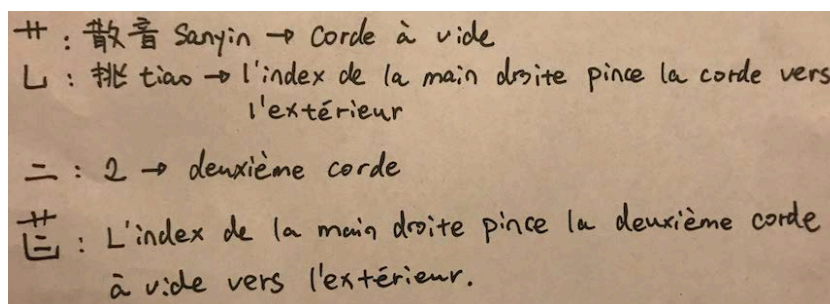 艹 : 散音 Sanyin → Corde à vide
乚 : 挑 tiao → l'index de la main droite pince la corde vers
l'extérieur
二 : 2 → deuxième corde
: L'index de la main droite pince la deuxième corde
à vide vers l'extérieur.